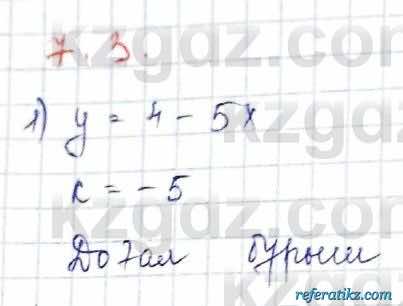 7.3.
1) y = 4 - 5x
k = -5
Доғал бұрыш
kzgdz.com
referatikz.com